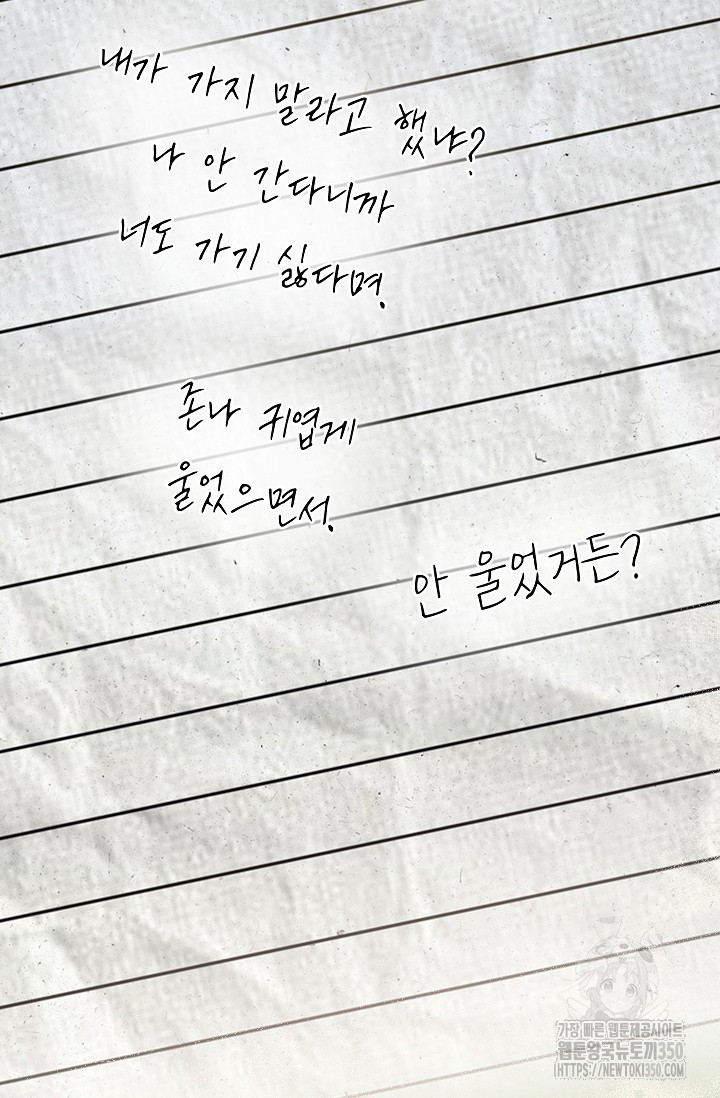 내가 가지 말라고 했냐?
나 안 간다니까
너도 가기 싫다며.
존나 귀엽게
울었으면서.
안 울었거든?
가장 빠른 웹툰제공사이트
웹툰왕국뉴토끼350
HTTPS://NEWTOKI350.COM